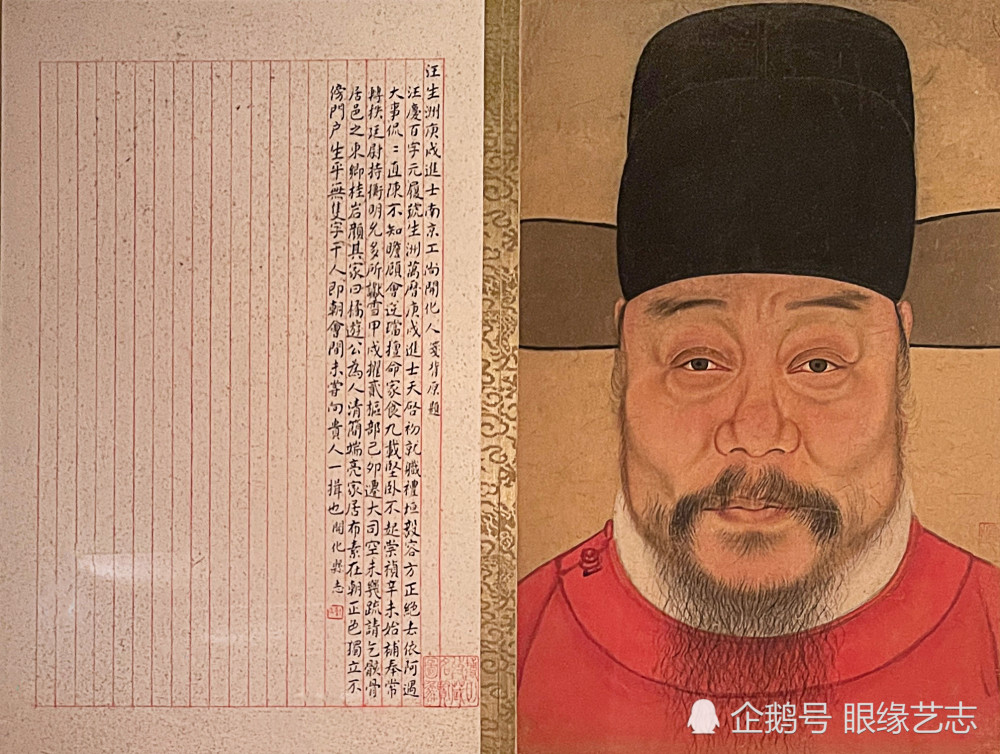 汪生洲庚戌進士南京工尚開化人 背原題
汪慶百字元履號生洲萬曆庚戌進士天啓初就職禮垣毅容方正絕去依阿遇
大事侃〻直陳不知瞻顧會逆璫擅命家食九載堅卧不起崇禎辛未始補奉常
轉秩廷尉持衡明允多所讞雪甲戌擢貳樞部己卯遷大司空未幾疏請乞骸骨
居邑之東鄉桂岩顏其家曰橘遊公為人清簡端亮家居布素在朝正色獨立不
傍門户生平無隻字干人即朝會間未嘗向貴人一揖也 開化縣志
企鹅号 眼缘艺志